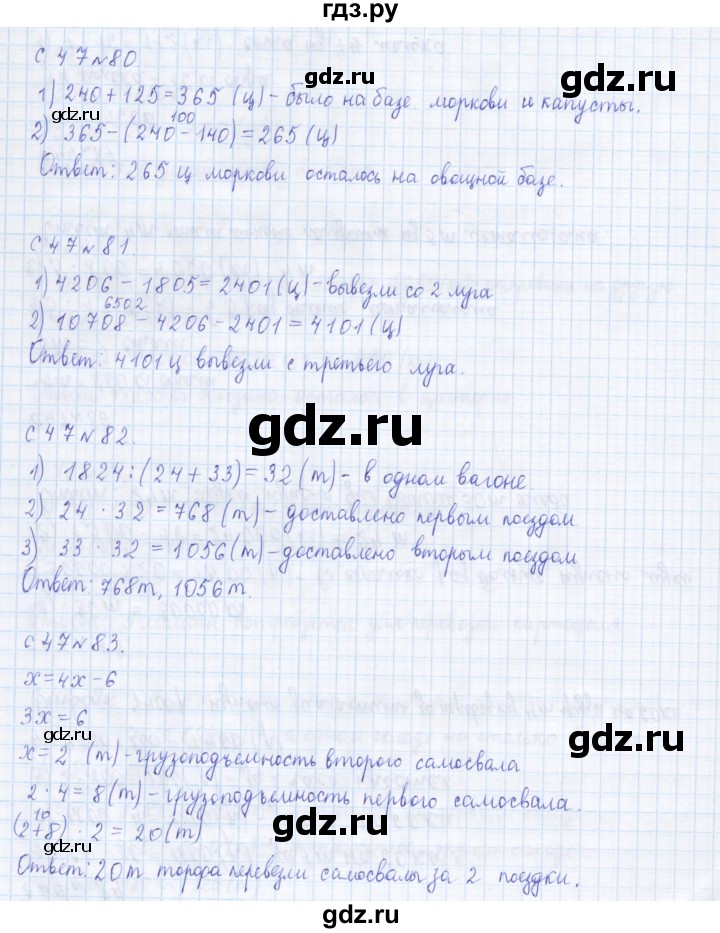 гдз.ру
с 47 № 80.
1) 240 + 125 = 365 (ц) - было на базе моркови и капусты.
gdz.ru gdz.ru
100
2) 365 - (240 - 140) = 265 (ц)
gdz.ru
Ответ: 265 ц моркови осталось на овощной базе.
с 47 № 81.
gdz.ru gdz.ru
1) 4206 - 1805 = 2401 (ц) - вывезли со 2 луга
6502
2) 10708 - 4206 - 2401 = 4101 (ц)
Ответ: 4101 ц вывезли с третьего луга.
gdz.ru
с 47 № 82.
1) 1824 : (24 + 33) = 32 (т) - в одном вагоне.
gdz.ru gdz.ru
2) 24 · 32 = 768 (т) - доставлено первым поездом
3) 33 · 32 = 1056 (т) - доставлено вторым поездом
Ответ: 768 т, 1056 т.
gdz.ru
с 47 № 83.
x = 4x - 6
3x = 6
gdz.ru gdz.ru
x = 2 (т) - грузоподъемность второго самосвала
2 · 4 = 8 (т) - грузоподъемность первого самосвала.
gdz.ru
10
(2 + 8) · 2 = 20 (т)
Ответ: 20 т торфа перевезли самосвалы за 2 поездки.
gdz.ru gdz.ru
gdz.ru